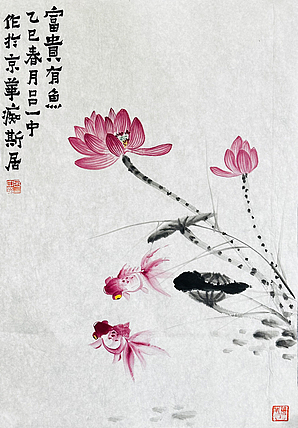 富貴有魚
乙巳春月吕一中
作於京華痴斯居